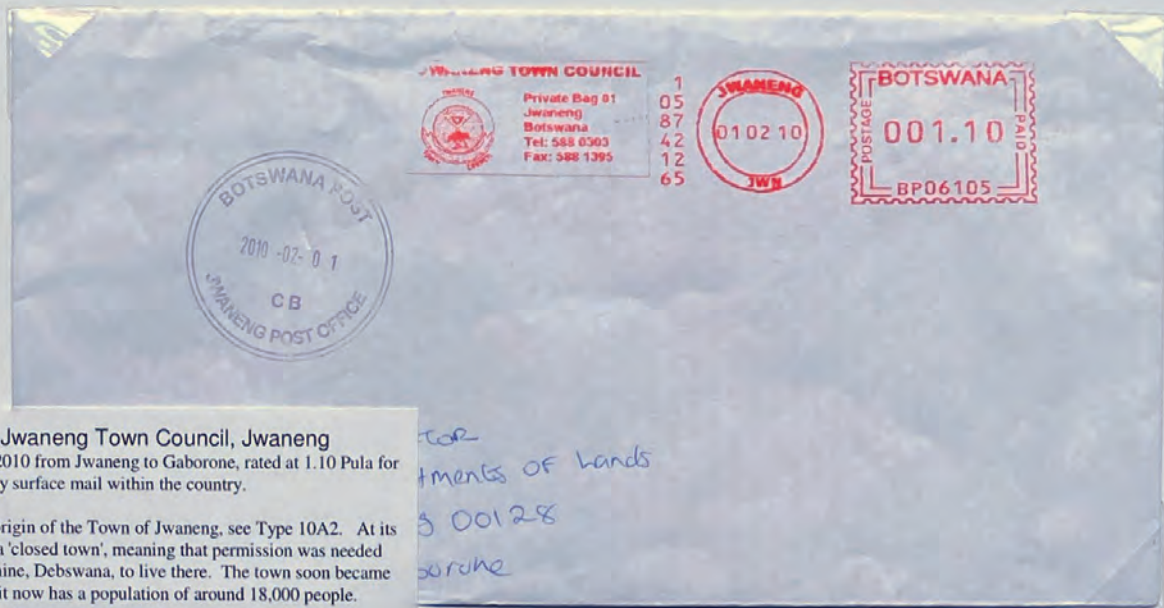 JWANENG TOWN COUNCIL
Private Bag 01
Jwaneng
Botswana
Tel: 588 0303
Fax: 588 1395
JWANENG
TOWN COUNCIL
1
05
87
42
12
65
JWANENG
01 02 10
JWN
BOTSWANA
POSTAGE
001.10
PAID
BP06105
BOTSWANA POST
2010 -02- 0 1
CB
JWANENG POST OFFICE
Jwaneng Town Council, Jwaneng
2010 from Jwaneng to Gaborone, rated at 1.10 Pula for
y surface mail within the country.
rigin of the Town of Jwaneng, see Type 10A2. At its
a 'closed town', meaning that permission was needed
ine, Debswana, to live there. The town soon became
it now has a population of around 18,000 people.
tor
tments of Lands
g 00128